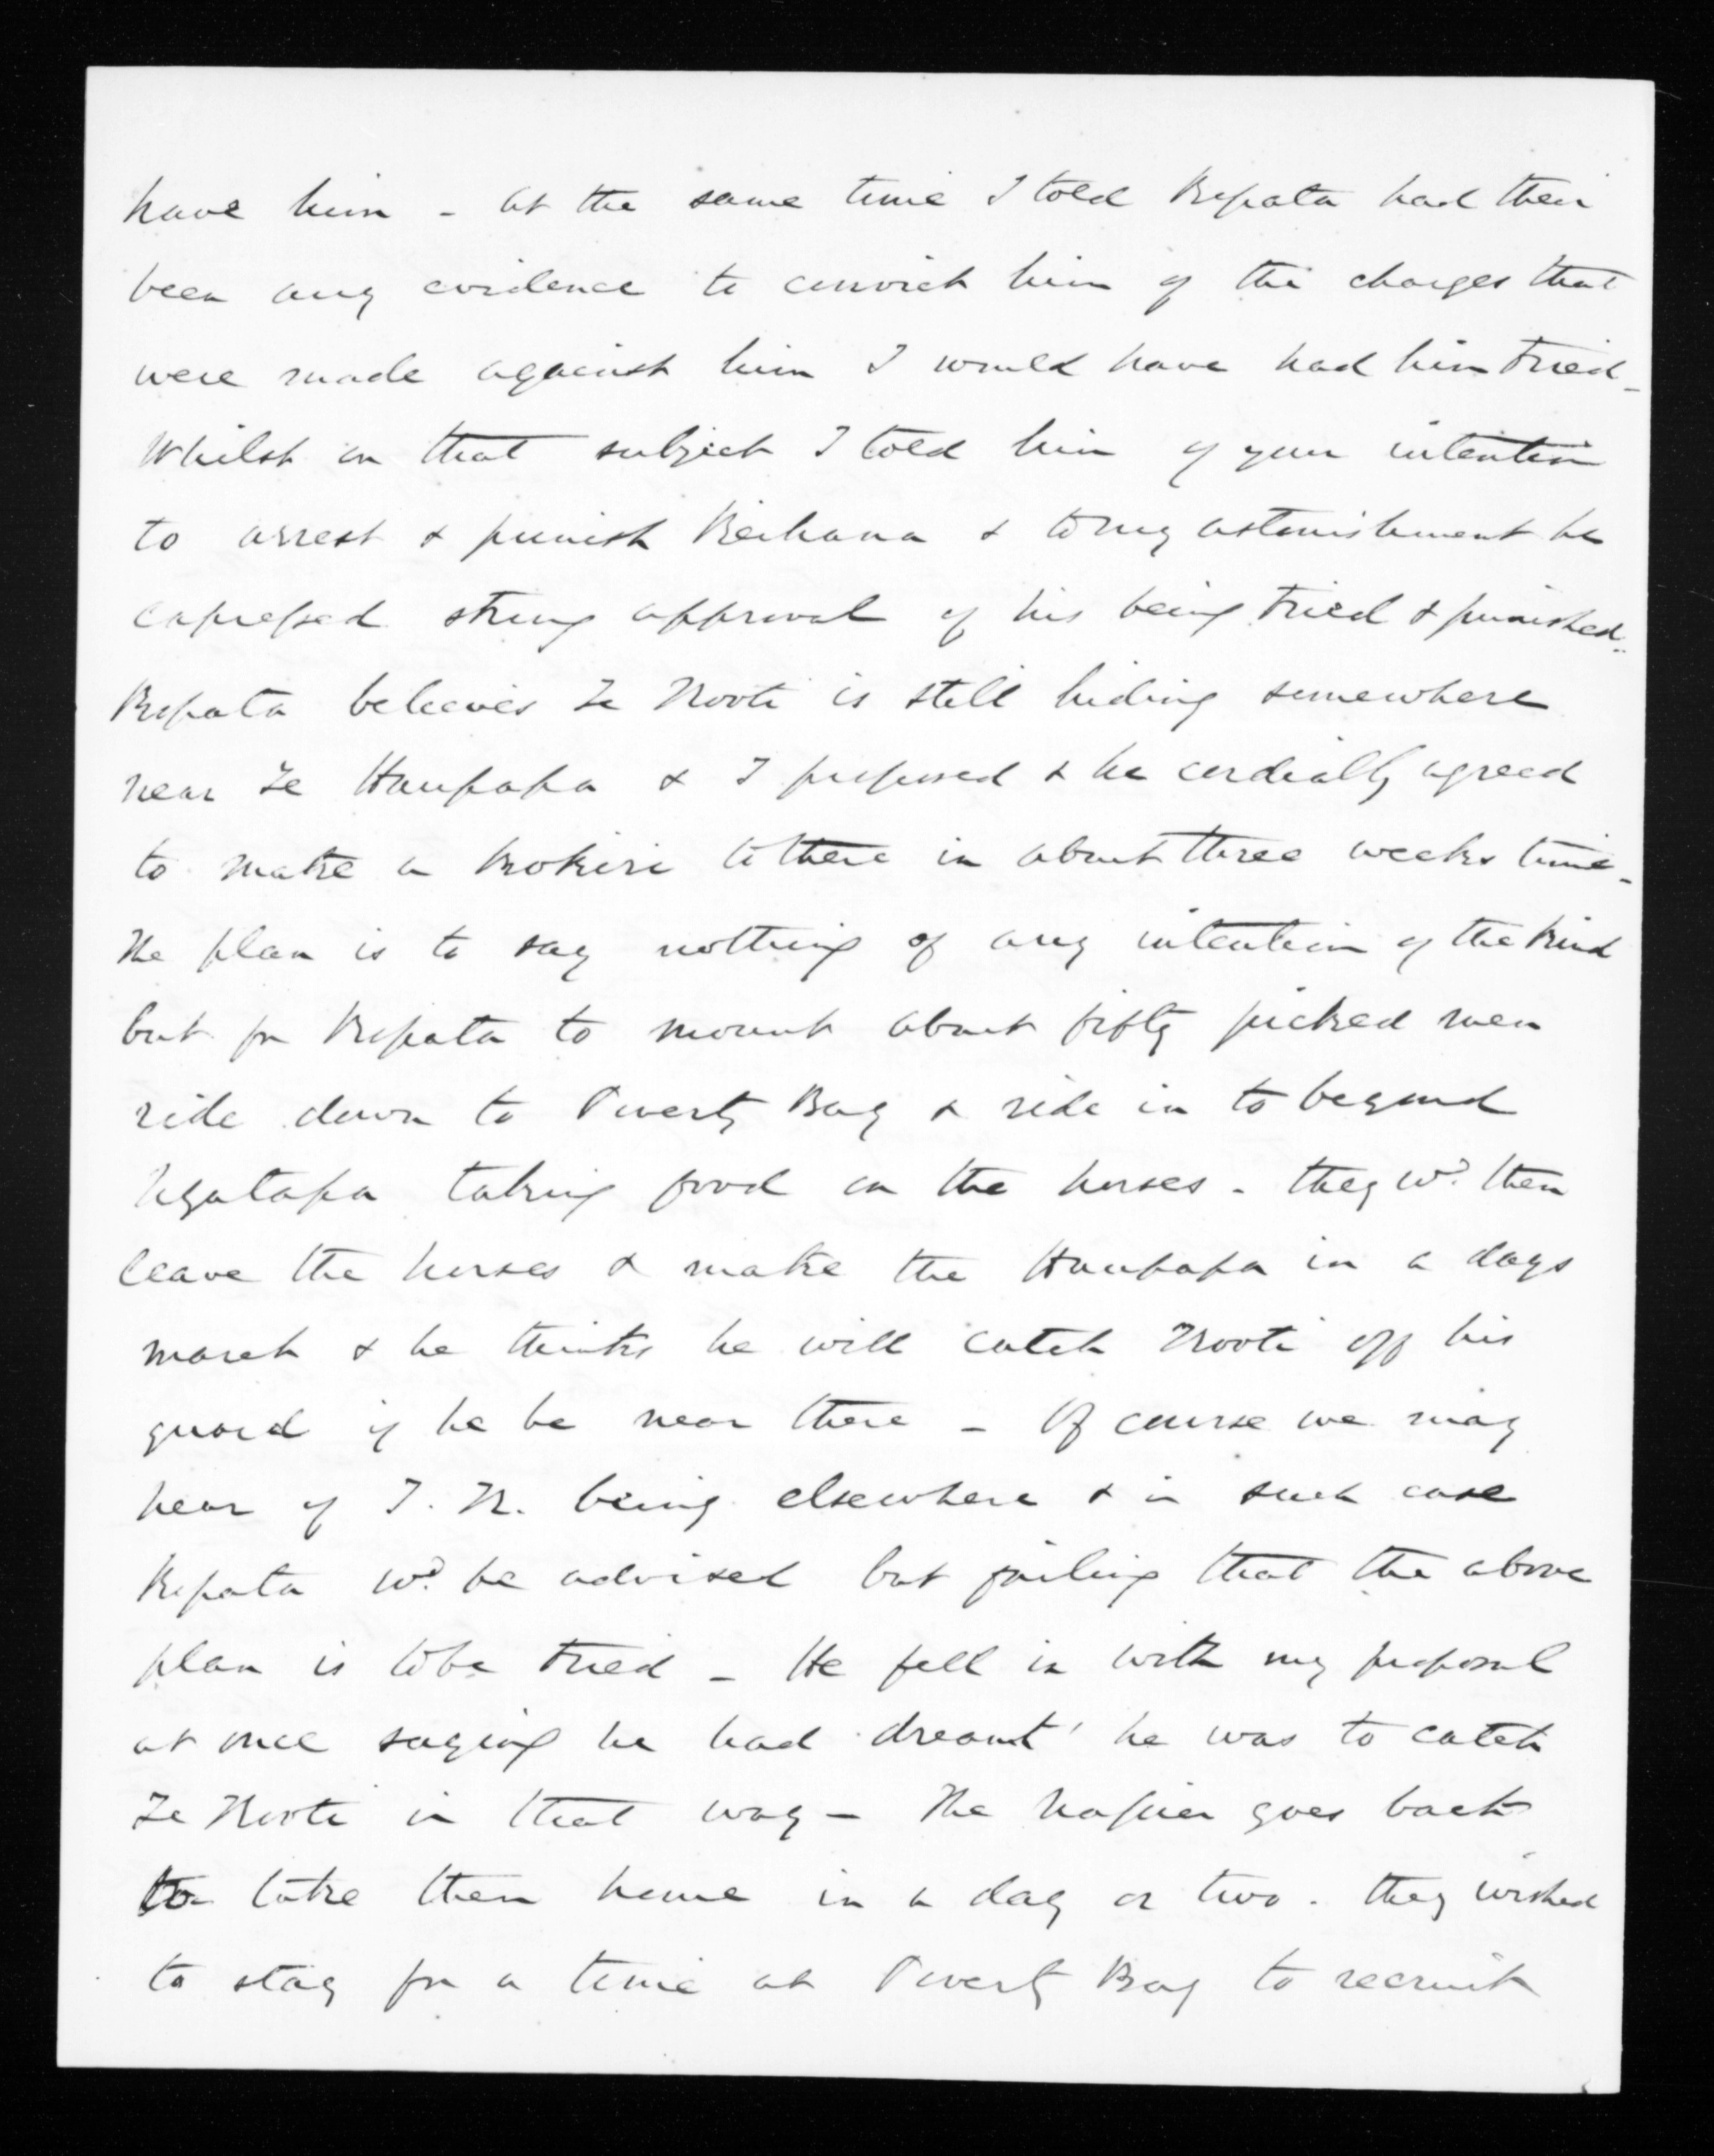 have him - At the same time I told Ropata had their
been any evidence to convict him of the charges that
were made against him I would have had him tried -
Whilst on that subject I told him of your intention
to arrest & punish Reihana & to my astonishment he
expressed strong approval of his being tried & punished.
Ropata beleeves Te Kooti is still hiding somewhere
near Te Haupapa & I proposed & he cordially agreed
to make a kokiri to there in about three weeks time -
The plan is to say nothing of any intention of the kind
but for Ropata to mount about fifty picked men
ride down to Poverty Bay & ride in to beyond
Ngatapa taking food on the horses - they wd then
leave the horses & make the Haupapa in a days
march & he thinks he will catch Kooti off his
guard if he be near there - Of course we may
hear of T. K. being elsewhere & in such case
Ropata wd be advised but failing that the above
plan is to be tried - He fell in with my proposal
at once saying he had dreamt he was to catch
Te Kooti in that way - The Napier goes back
to take them home in a day or two. they wished
to stay for a time at Poverty Bay to recruit